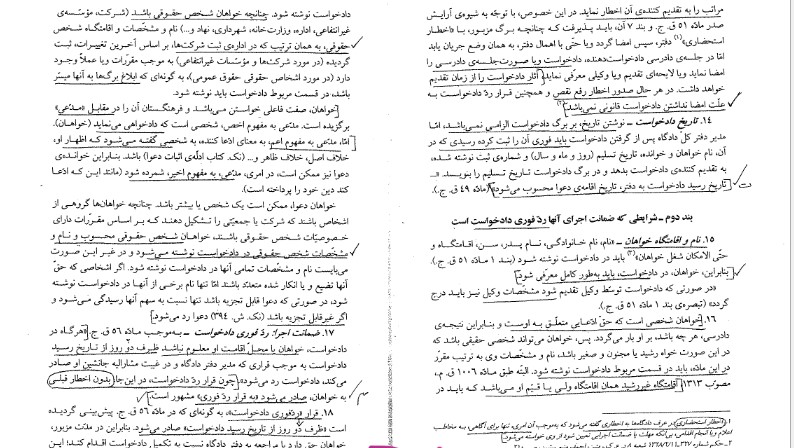 مراتب را به تقدیم کننده‌ی آن اخطار نماید. در این خصوص، با توجّه به شیوه‌ی آرایش
صدر مادّه ۵۱ ق. ج. و بند ۷ آن، باید پذیرفت که چنانچه برگ مزبور، بـا «اخطار
استحضاری»(۱) دفتر، سپس امضا گردد ویا حتّی با اهمال دفتر، به همان وضع جریان یابد
امّا در جلسه‌ی دادرسی دادخواست ویا صورت‌جلسه‌ی دادرسی را
امضا نماید ویا لایحه‌ای تقدیم ویا وکیلی معرفی نماید، آثار دادخواست را از زمان تقدیم
خواهد داشت. در هر حال صدور اخطار رفع نقص و همچنین قرار ردّ دادخواست بـه
علّت امضا نداشتن دادخواست قانونی نمی‌باشد.
۱۴. تاریخ دادخواست ـ نوشتن تاریخ، بر برگ دادخواست الزامی نمـی‌باشـد، امّا
مدیر دفتر کلّ دادگاه پس از گرفتن دادخواست باید فوری آن را ثبت کرده رسیدی که در
آن، نام خواهان و خوانده، تاریخ تسلیم (روز و ماه و سال) و شماره‌ی ثبت نوشته شده،
به تقدیم کننده‌ی دادخواست بدهد و در برگ دادخواست تاریخ تسلیم را بنویسد. «...
تاریخ رسید دادخواست به دفتر، تاریخ اقامه‌ی دعوا محسوب می‌شود» (مادّه ۴۹ ق. ج.).
بند دوم ـ شرایطی که ضمانت اجرای آنها ردّ فوری دادخواست است
۱۵. نام و اقامتگاه خواهان ـ «نام، نام خـانوادگـی، نـام پـدر، سـن، اقـامتگـاه و
حتّی الامکان شغل خواهان»(۲) باید در دادخواست نوشته شـود (بنـد ۱ مـادّه ۵۱ ق. ج.).
بنابراین، خواهان، در دادخواست، باید به‌طور کامل معرّفی شود.
«در صورتی که دادخواست توسّط وکیل تقدیم شود مشخّصات وکیل نیـز بایـد درج
گردد» (تبصره‌ی بند ۱ مادّه ۵۱ ق. ج.).
۱۶. خواهان شخصی است که حقّ ادّعایی متعلّـق بـه اوسـت و بنـابراین نتیجـه‌ی
دادرسی، هر چه باشد، بر او بار می‌گردد. پس، خواهان می‌تواند شخص حقیقی باشد که
در این صورت خواه رشید یا مجنون و صغیر باشد، نام و مشخّصات وی به ترتیب مقرّر
در این مادّه، باید در قسمت مربوط دادخواست نوشته شود. البتّه طبق مادّه ۱۰۰۶ ق. م.
مصوّب ۱۳۱۳، اقامتگاه غیررشید همان اقامتگاه ولی یا قیّم او مـی‌باشـد کـه بایـد در
۱. اخطار استحضاری، در عرف دادگاه‌ها به اخطاری گفته می‌شود که به‌موجب آن امری، تنها برای آگاهی به مخاطب
دادخواست نوشته شود. چنانچه خواهان شخص حقوقی باشد (شرکت، مؤسّسه‌ی
غیرانتفاعی، اداره، وزارت‌خانه، شهرداری، نهاد و...) نام و مشخّصات و اقامتگاه شـخص
حقوقی، به همان ترتیب که در اداره‌ی ثبت شرکت‌ها، بر اساس آخرین تغییـرات، ثبـت
گردیده (در مورد شرکت‌ها و مؤسّسات غیرانتفاعی) به موجب مقرّرات ویا عملاً وجـود
دارد (در مورد اشخاص حقوقی حقوق عمومی)، به گونه‌ای که ابلاغ برگ‌ها به آنها میسّر
باشد، در قسمت مربوط دادخواست باید نوشته شود.
خواهان، صفت فاعلی خواستن می‌باشد و فرهنگستان آن را در مقابل «مدّعی»
برگزیده است. مدّعی به مفهوم اخص، شخصی است که دادخواهی می‌نماید (خواهان).
امّا، مدّعی به مفهوم اعم، به معنای ادّعا کننده، به شخصی گفته مـی‌شـود کـه اظهـار او،
خلاف اصل، خلاف ظاهر و... (نک. کتاب ادلّه‌ی اثبات دعوا) باشد. بنابراین خوانده‌ی
دعوا نیز ممکن است، در امری، مدّعی، به مفهوم اخیر، شمرده شود (مانند این کـه ادّعـا
کند دین خود را پرداخته است).
خواهان دعوا، ممکن است یک شخص یا بیشتر باشد. چنانچه خواهان‌ها گروهی از
اشخاص باشند که شرکت یا جمعیّتی را تشکیل دهنـد کـه بـر اسـاس مقـرّرات دارای
خـصوصیّات شـخص حقـوقی باشـند، خواهـان شـخص حقـوقی محسـوب و نـام و
مشخّصات شخص حقوقی در دادخواست نوشته مـی‌شـود و در غیـر ایـن صـورت
می‌بایست نام و مشخّصات تمامی آنها در دادخواست نوشته شود. اگر اشخاصی که حقّ
آنها تضییع و یا انکار شده متعدّد باشند امّا تنها نام برخی از آنهـا در دادخواسـت نوشـته
شود، در صورتی که دعوا قابل تجزیه باشد تنها نسبت به سهم آنها رسیدگی مـی‌شـود و
اگر غیرقابل تجزیه باشد (نک. ش. ۳۹۴) دعوا رد می‌شود.
۱۷. ضمانت اجرا: ردّ فوری دادخواست ـ به‌موجب مـادّه ۵۶ ق. ج. «هرگـاه در
دادخواست، خواهان یا محلّ اقامت او معلوم نباشد ظـرف دو روز از تـاریخ رسـید
دادخواست به موجب قراری که مدیر دفتر دادگاه و در غیبت مشارالیه جانشین او صادر
می‌کند، دادخواست رد می‌شود». چون قرار ردّ دادخواست، در این‌جا، بدون اخطار قبلی
به خواهان، صادر می‌شود به «قرار ردّ فوری» مشهور است.
۱۸. قرار «ردّفوری دادخواست»، به گونه‌ای که در مادّه ۵۶ ق. ج. پیش‌بینی گردیده
است «ظرف دو روز از تاریخ رسید دادخواست» صادر می‌شود. بنابراین در مدّت مزبور،